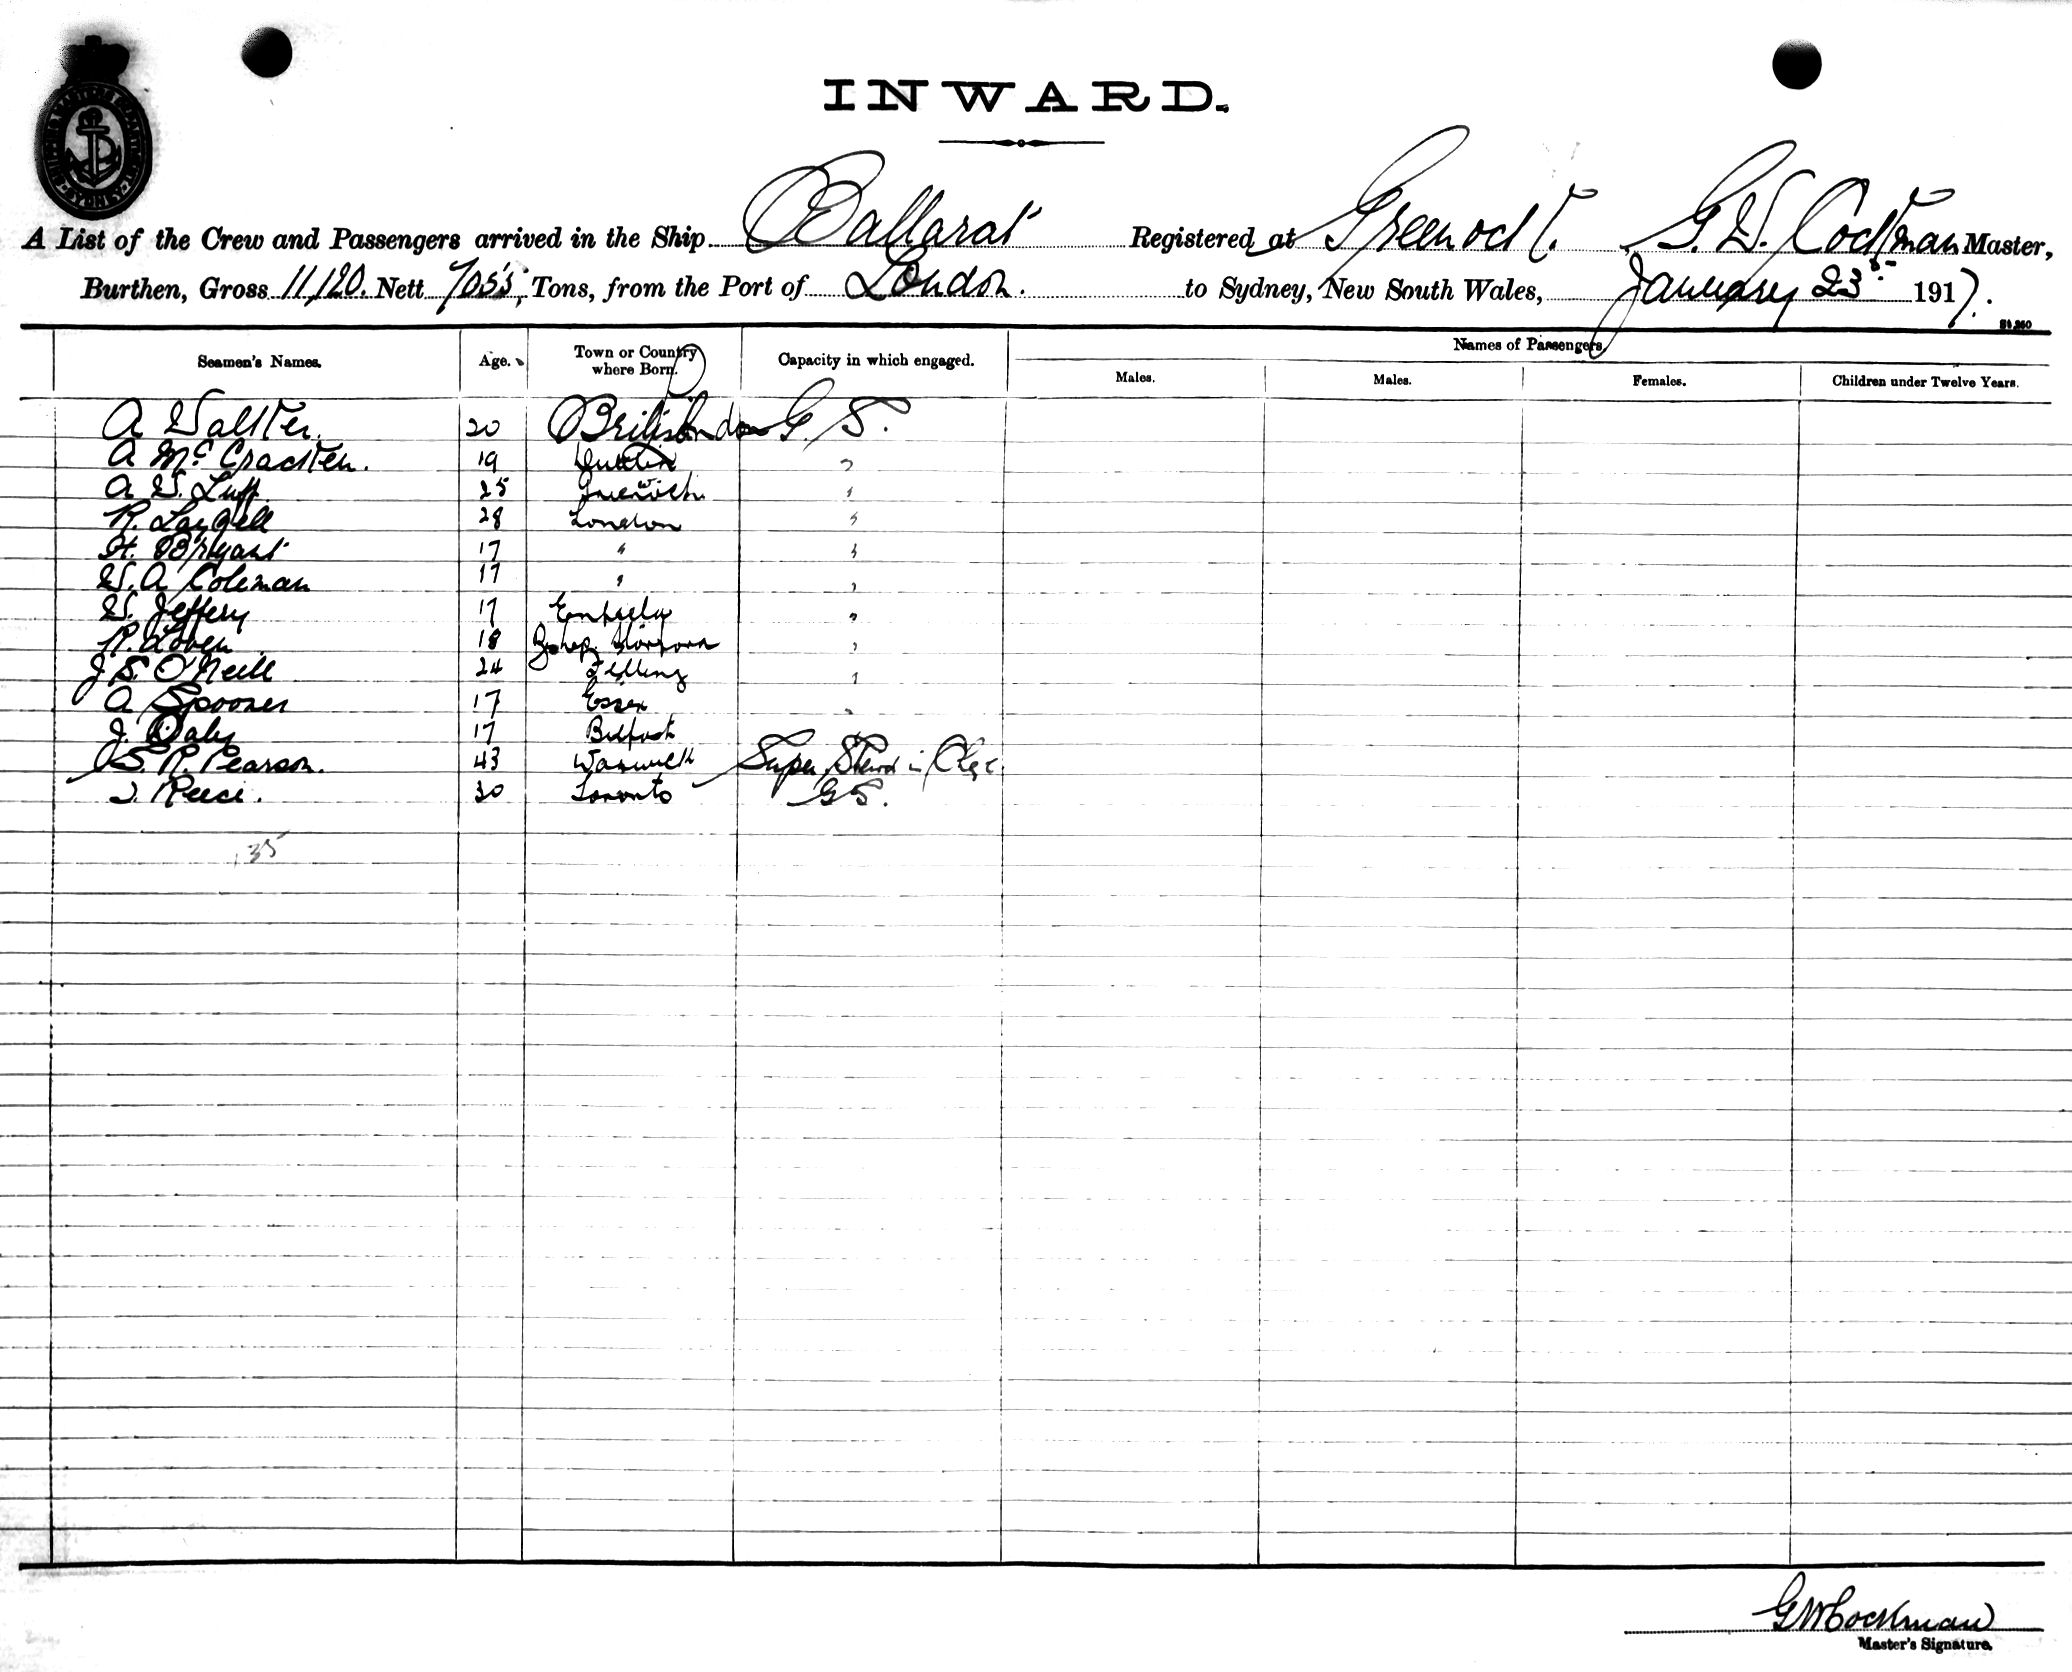 INWARD.
A List of the Crew and Passengers arrived in the Ship Ballarat Registered at Greenock. G. W. Cockman Master,
Burthen, Gross 11,120. Nett 7055, Tons, from the Port of London. to Sydney, New South Wales, January 23 1917.
Names of Passengers
Seamen's Names. Age. Town or Country where Born. Capacity in which engaged. Males. Males. Females. Children under Twelve Years.
A Walker 20 British London G. S.
A McCracken. 19 "
A W. Luff 25 Greenwich "
R. Layzell 28 London "
H. Bryant 17 " "
W. A Coleman 17 " "
W. Jeffery 17 "
R. 18 Bishop "
J S. O'Neill 24 Felling "
A Spooner 17 Essex
J. Daly 17 Belfast
S. R. Pearson. 43 Super in Chge.
J. Reece. 30 Toronto G S.
135
GW Cockman
Master's Signature.